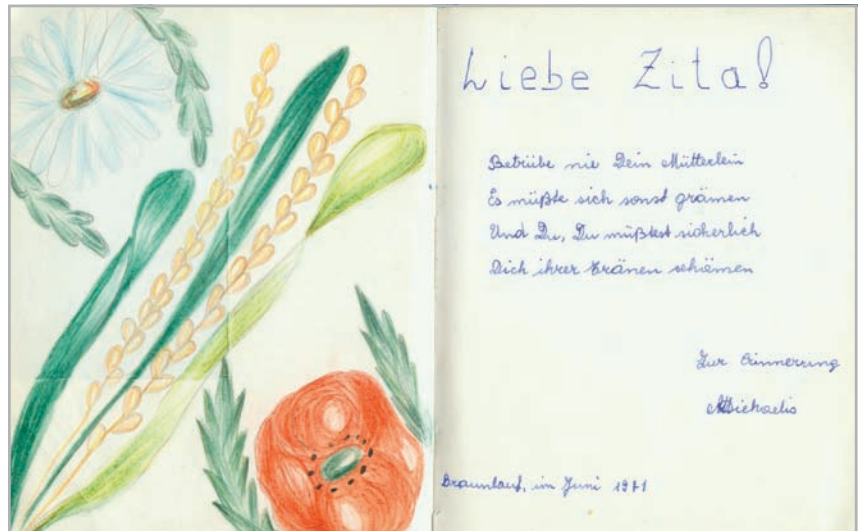 Liebe Zita!
Betrübe nie Dein Mütterlein
Es müßte sich sonst grämen
Und Du, Du müßtest sicherlich
Dich ihrer Tränen schämen
Zur Erinnerung
Michaelis
Braunlauf, im Juni 1971